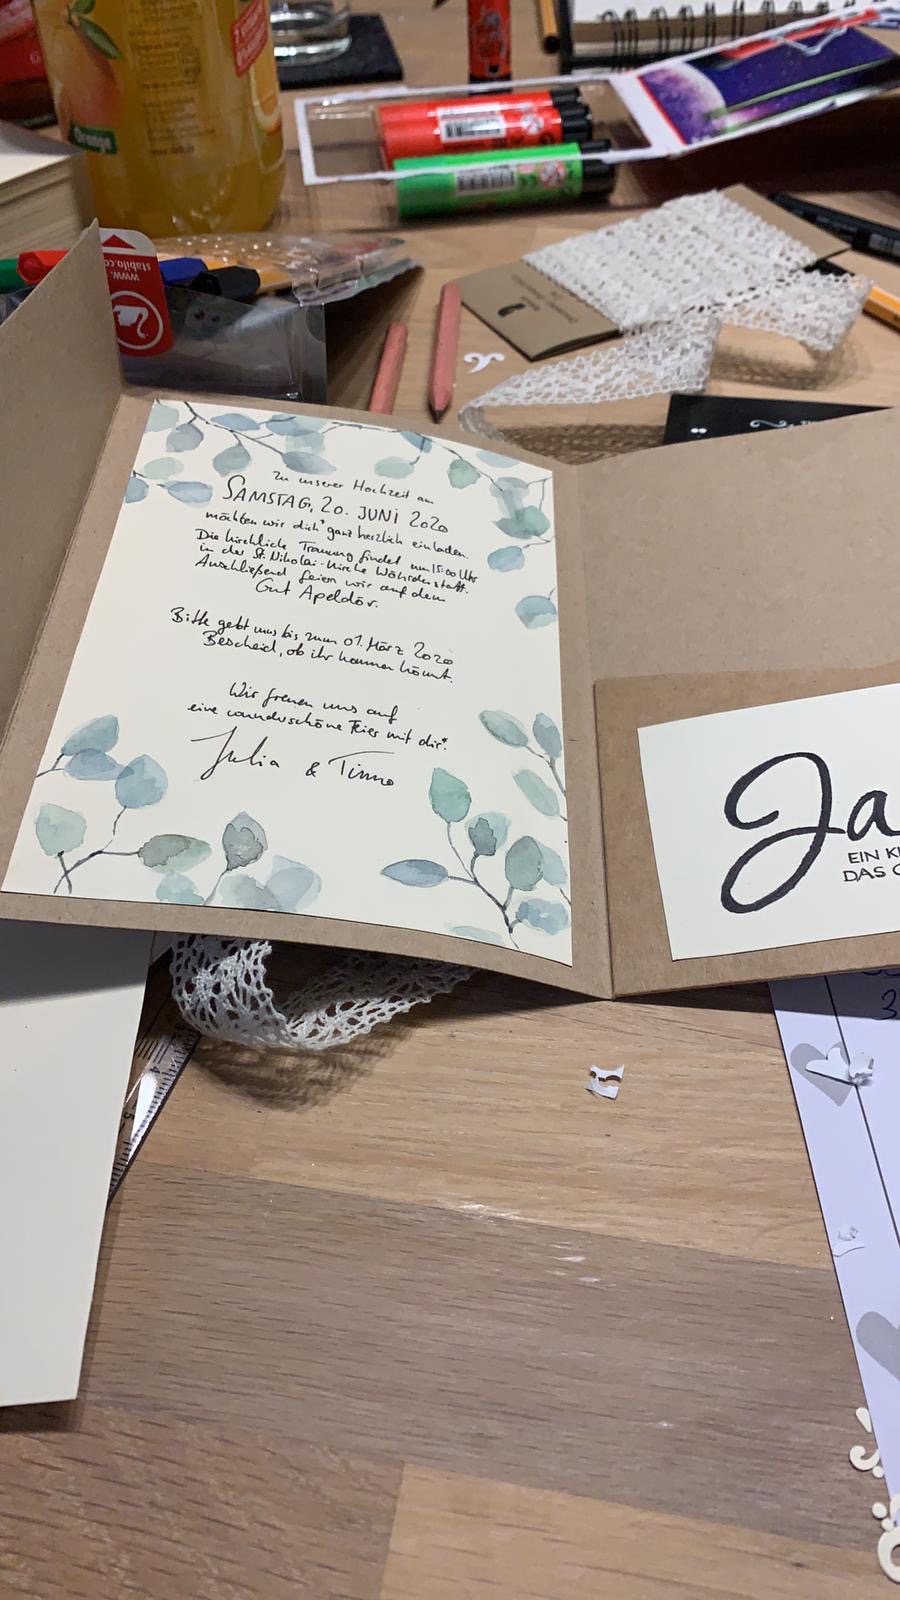 Orange
www.stabilo.co
Zu unserer Hochzeit am
SAMSTAG, 20. JUNI 2020
möchten wir dich* ganz herzlich einladen.
Die kirchliche Trauung findet um 15:00 Uhr
in der St. Nikolai-Kirche Wöhrden statt.
Anschließend feiern wir auf dem
Gut Apeldör.
Bitte gebt uns bis zum 01. März 2020
Bescheid, ob ihr kommen könnt.
Wir freuen uns auf
eine wunderschöne Feier mit dir*.
Julia & Timo
Ja
EIN K
DAS G